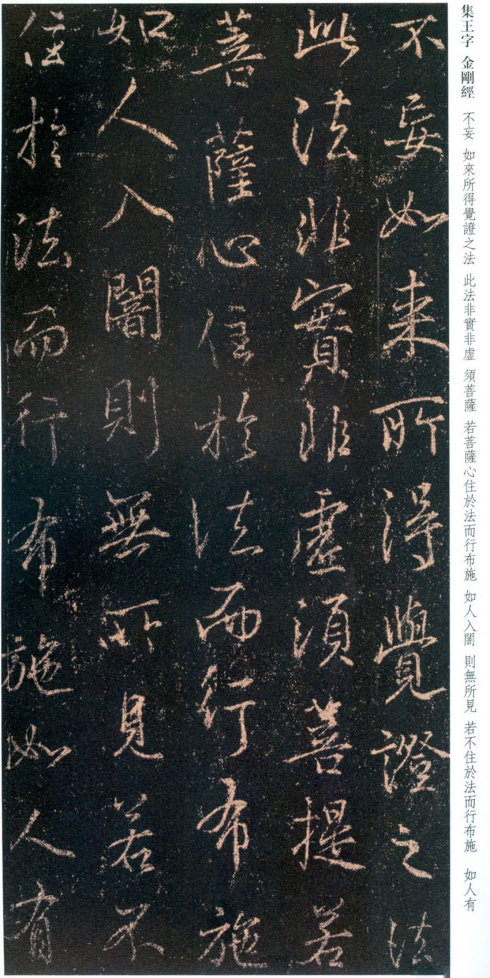 集王字 金剛經 不妄 如來所得覺證之法 此法非實非虛 須菩薩 若菩薩心住於法而行布施 如人入闇 則無所見 若不住於法而行布施 如人有
不妄如来所得覺證之法
此法非實非虛須菩提若
菩薩心住於法而行布施
如人入闇則無所見若不
住於法而行布施如人有